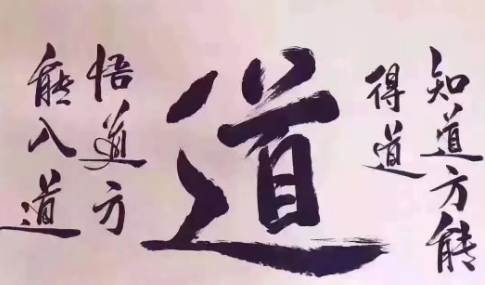 知道方能
得道
道
悟道方
能入道